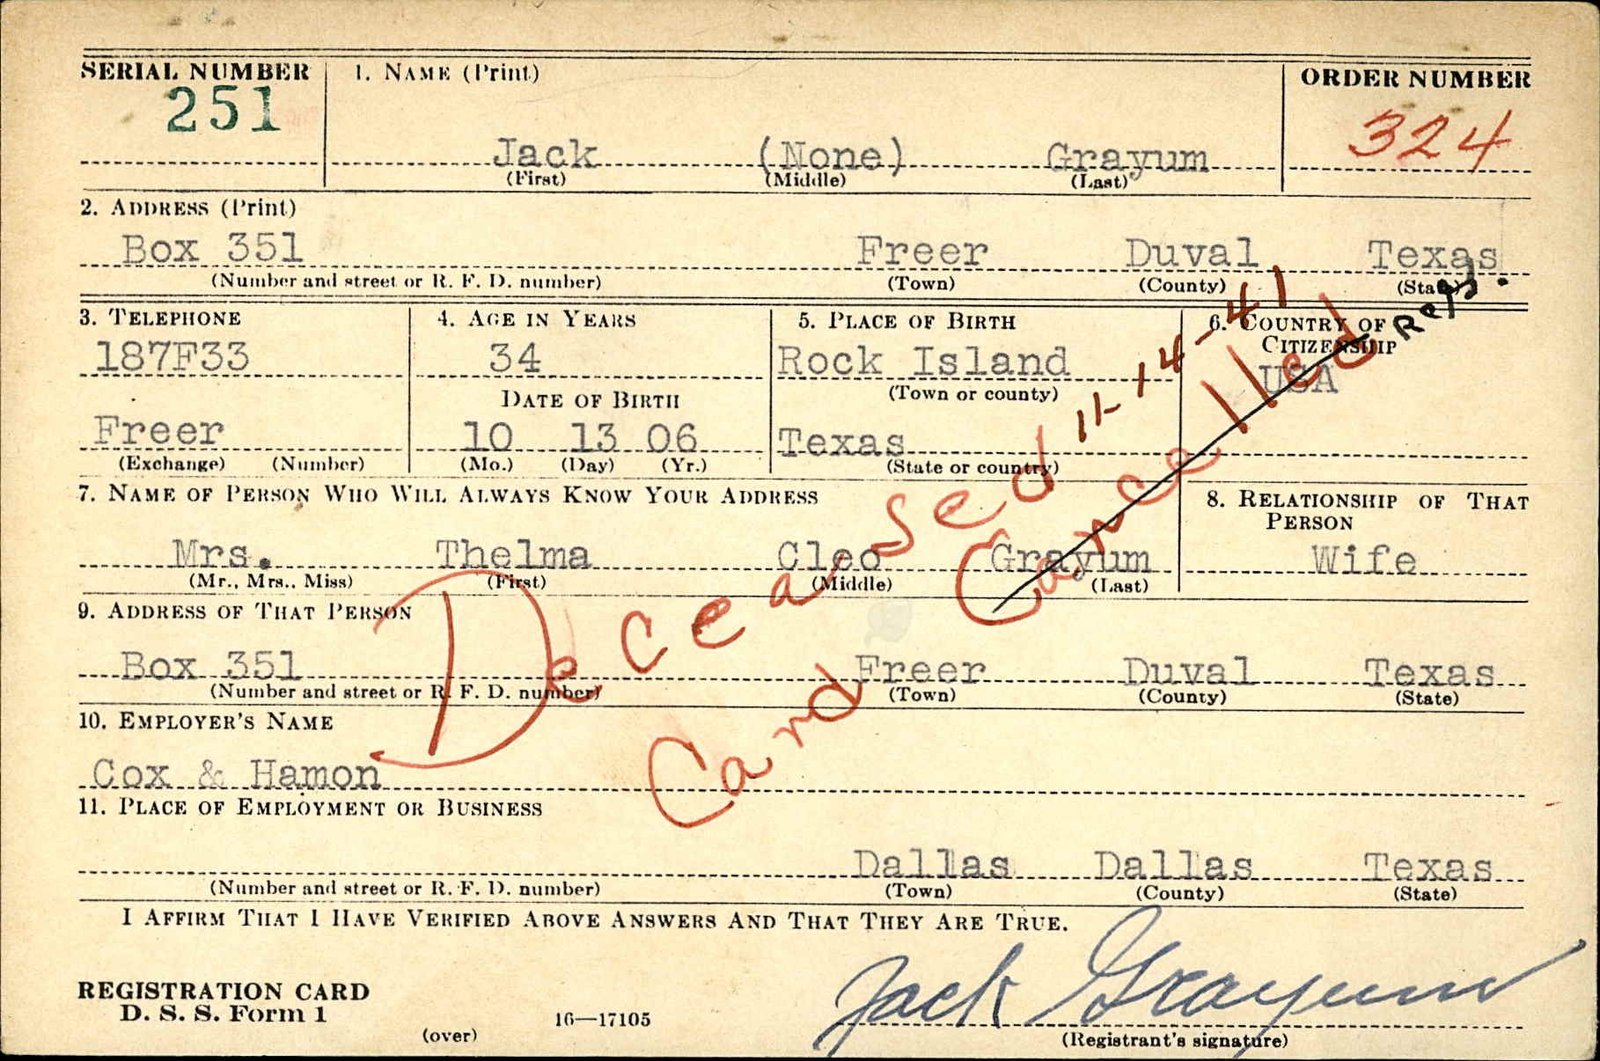 SERIAL NUMBER 1. NAME (Print) ORDER NUMBER
251 324
Jack (None) Grayum
(First) (Middle) (Last)
2. ADDRESS (Print)
Box 351 Freer Duval Texas
(Number and street or R. F. D. number) (Town) (County) (State)
3. TELEPHONE 4. AGE IN YEARS 5. PLACE OF BIRTH 6. COUNTRY OF
CITIZENSHIP
187F33 34 Rock Island USA
DATE OF BIRTH (Town or county)
Freer 10 13 06 Texas
(Exchange) (Number) (Mo.) (Day) (Yr.) (State or country)
7. NAME OF PERSON WHO WILL ALWAYS KNOW YOUR ADDRESS 8. RELATIONSHIP OF THAT
PERSON
Mrs. Thelma Cleo Grayum Wife
(Mr., Mrs., Miss) (First) (Middle) (Last)
9. ADDRESS OF THAT PERSON
Box 351 Freer Duval Texas
(Number and street or R. F. D. number) (Town) (County) (State)
10. EMPLOYER'S NAME
Cox & Hamon
11. PLACE OF EMPLOYMENT OR BUSINESS
Dallas Dallas Texas
(Number and street or R. F. D. number) (Town) (County) (State)
I AFFIRM THAT I HAVE VERIFIED ABOVE ANSWERS AND THAT THEY ARE TRUE.
REGISTRATION CARD
D. S. S. Form 1
(over) 16—17105
Jack Grayum
(Registrant's signature)
Deceased 11-14-41
Card Cancelled